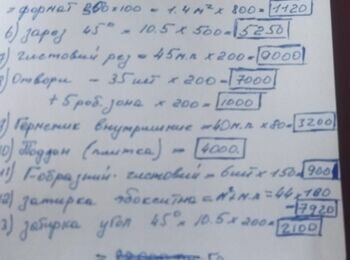 формат 300x100 = 1.4м² x 800 = 1120
6) зарез 45° - 10.5 x 500 = 5250
7) чистовий рез = 45м.п x 200 = 9000
8) Отвори - 35шт x 200 = 7000
+ 5 роб. зона x 200 = 1000
9) Герметик внутришние = 40м.п x 80 = 3200
10) Поддон (плитка) = 4000
11) Г-образний чистовий = 6шт x 150 = 900
12) затирка эбокситна = м²+м.п = 44 x 180
= 7920
13) забирка угол 45° x 10.5 x 200 = 2100